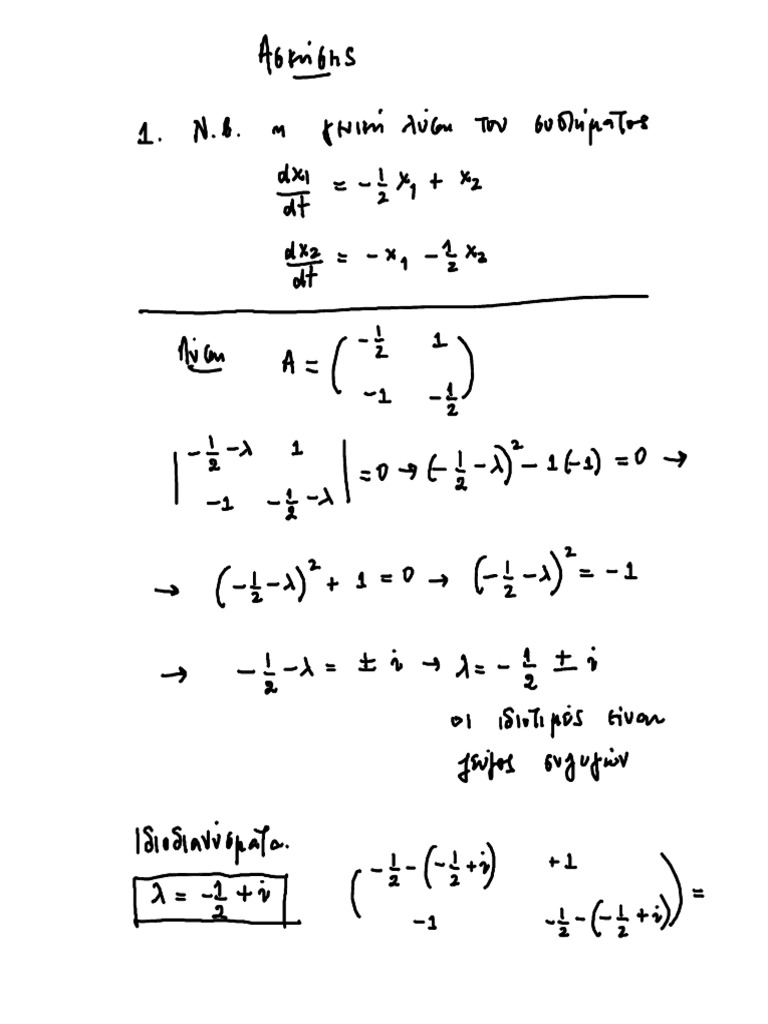 Ασκήσης
1. Ν.β. η γενική λύση του συστήματος
dx₁/dt = -1/2 x₁ + x₂
dx₂/dt = -x₁ - 1/2 x₂
Λύση A = ( -1/2 1 ; -1 -1/2 )
| -1/2 -λ 1 ; -1 -1/2 -λ | = 0 → (-1/2 -λ)² - 1(-1) = 0 →
→ (-1/2 -λ)² + 1 = 0 → (-1/2 -λ)² = -1
→ -1/2 -λ = ± i → λ = -1/2 ± i
οι ιδιοτιμές είναι
ζεύγος συζυγών
Ιδιοδιανύσματα.
λ = -1/2 + i ( -1/2 - (-1/2 + i) +1 ; -1 -1/2 - (-1/2 + i) ) =